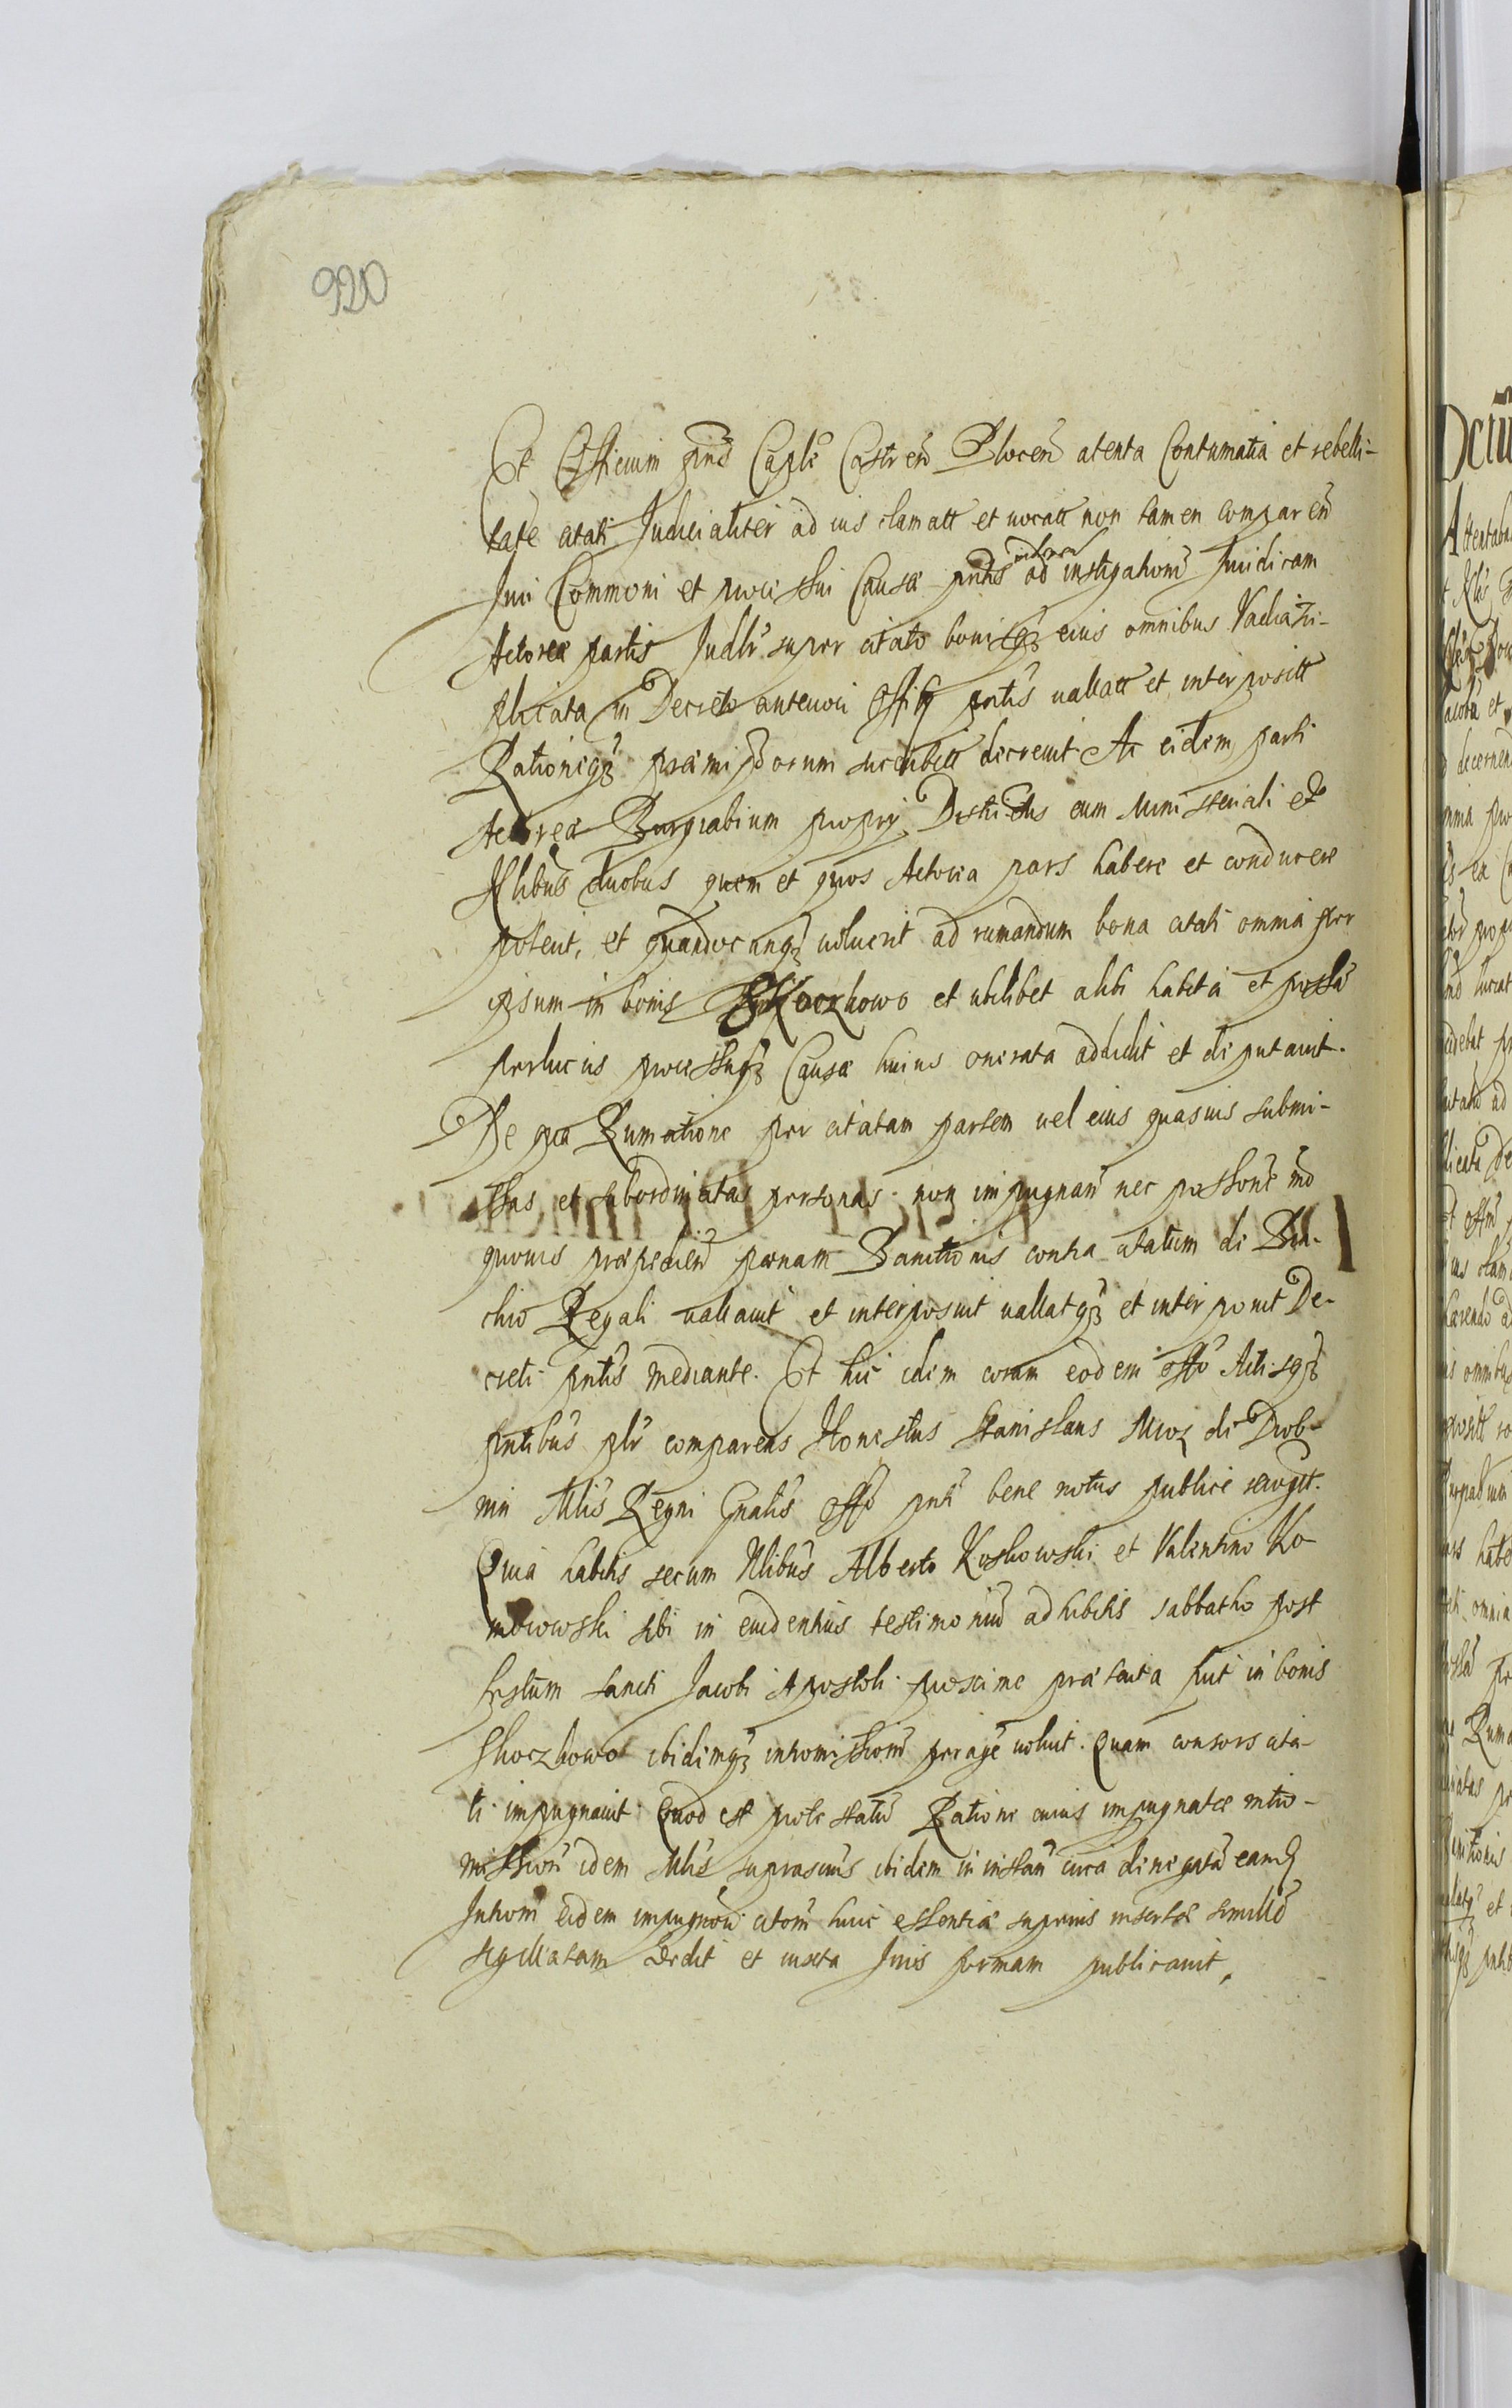 920
Et Officium pns Caple Castren Plocen atenta Contumatia et rebelli-
tate citati Judicialiter ad ius clamatt et vocatt non tamen comparen
Juri Communi et processui Causæ pntis ad instigationem Juridicam
Actoreæ partis Judlr super citato bonisqз eius omnibus Vadia tri-
plicata in Decreto anteriori Offii pntis vallatt et interposita
Rationeqз præmissorum succubitt decrevit Ac eidem parti
Actoreæ Burgrabium proprii Districtus cum Ministeriali et
Nlibus duobus quem et quos Actorea pars habere et conducere
poterit, et quandocunqз voluerit ad rumandum bona citati omnia per
ipsum in bonis Skoczkowo et ubilibet alibi habita et possa
perlucris processuqз Causæ huius onerata addidit et deputavit.
De qua Rumatione per citatam partem vel eius quasvis submi-
ssas et subordinatas personas non impugnan nec possone mo
quovis præpedien pœnam Bannitionis contra citatum de Bra-
chio Regali vallavit et interposuit vallatqз et interponit De-
creti pntis mediante. Et hic idem coram eodem offo Actisqз
pntibus plr comparens Honestus Stanislaus Mroz de Drob-
nin Mlis Regni Gnalis offo pnti bene notus publice recogt.
Quia habitis secum Nlibus Alberto Koskowski et Valentino Ko
morowski sibi in evidentius testimoniu adhibitis sabbatho post
festum Sancti Jacobi Apostoli proxime præterita fuit in bonis
Skoczkowo ibidemqз intromissionem peragere voluit. Quam consors cita-
ti impugnavit Quod est protestatu Ratione cuius impugnatæ intro-
missioni idem Mlis suprascrius ibidem in instan circa denegata eand
Introm eidem impugnon citom huic essentiæ superius insertæ similem
sigillatam Dedit et iuxta Juris formam publicavit.